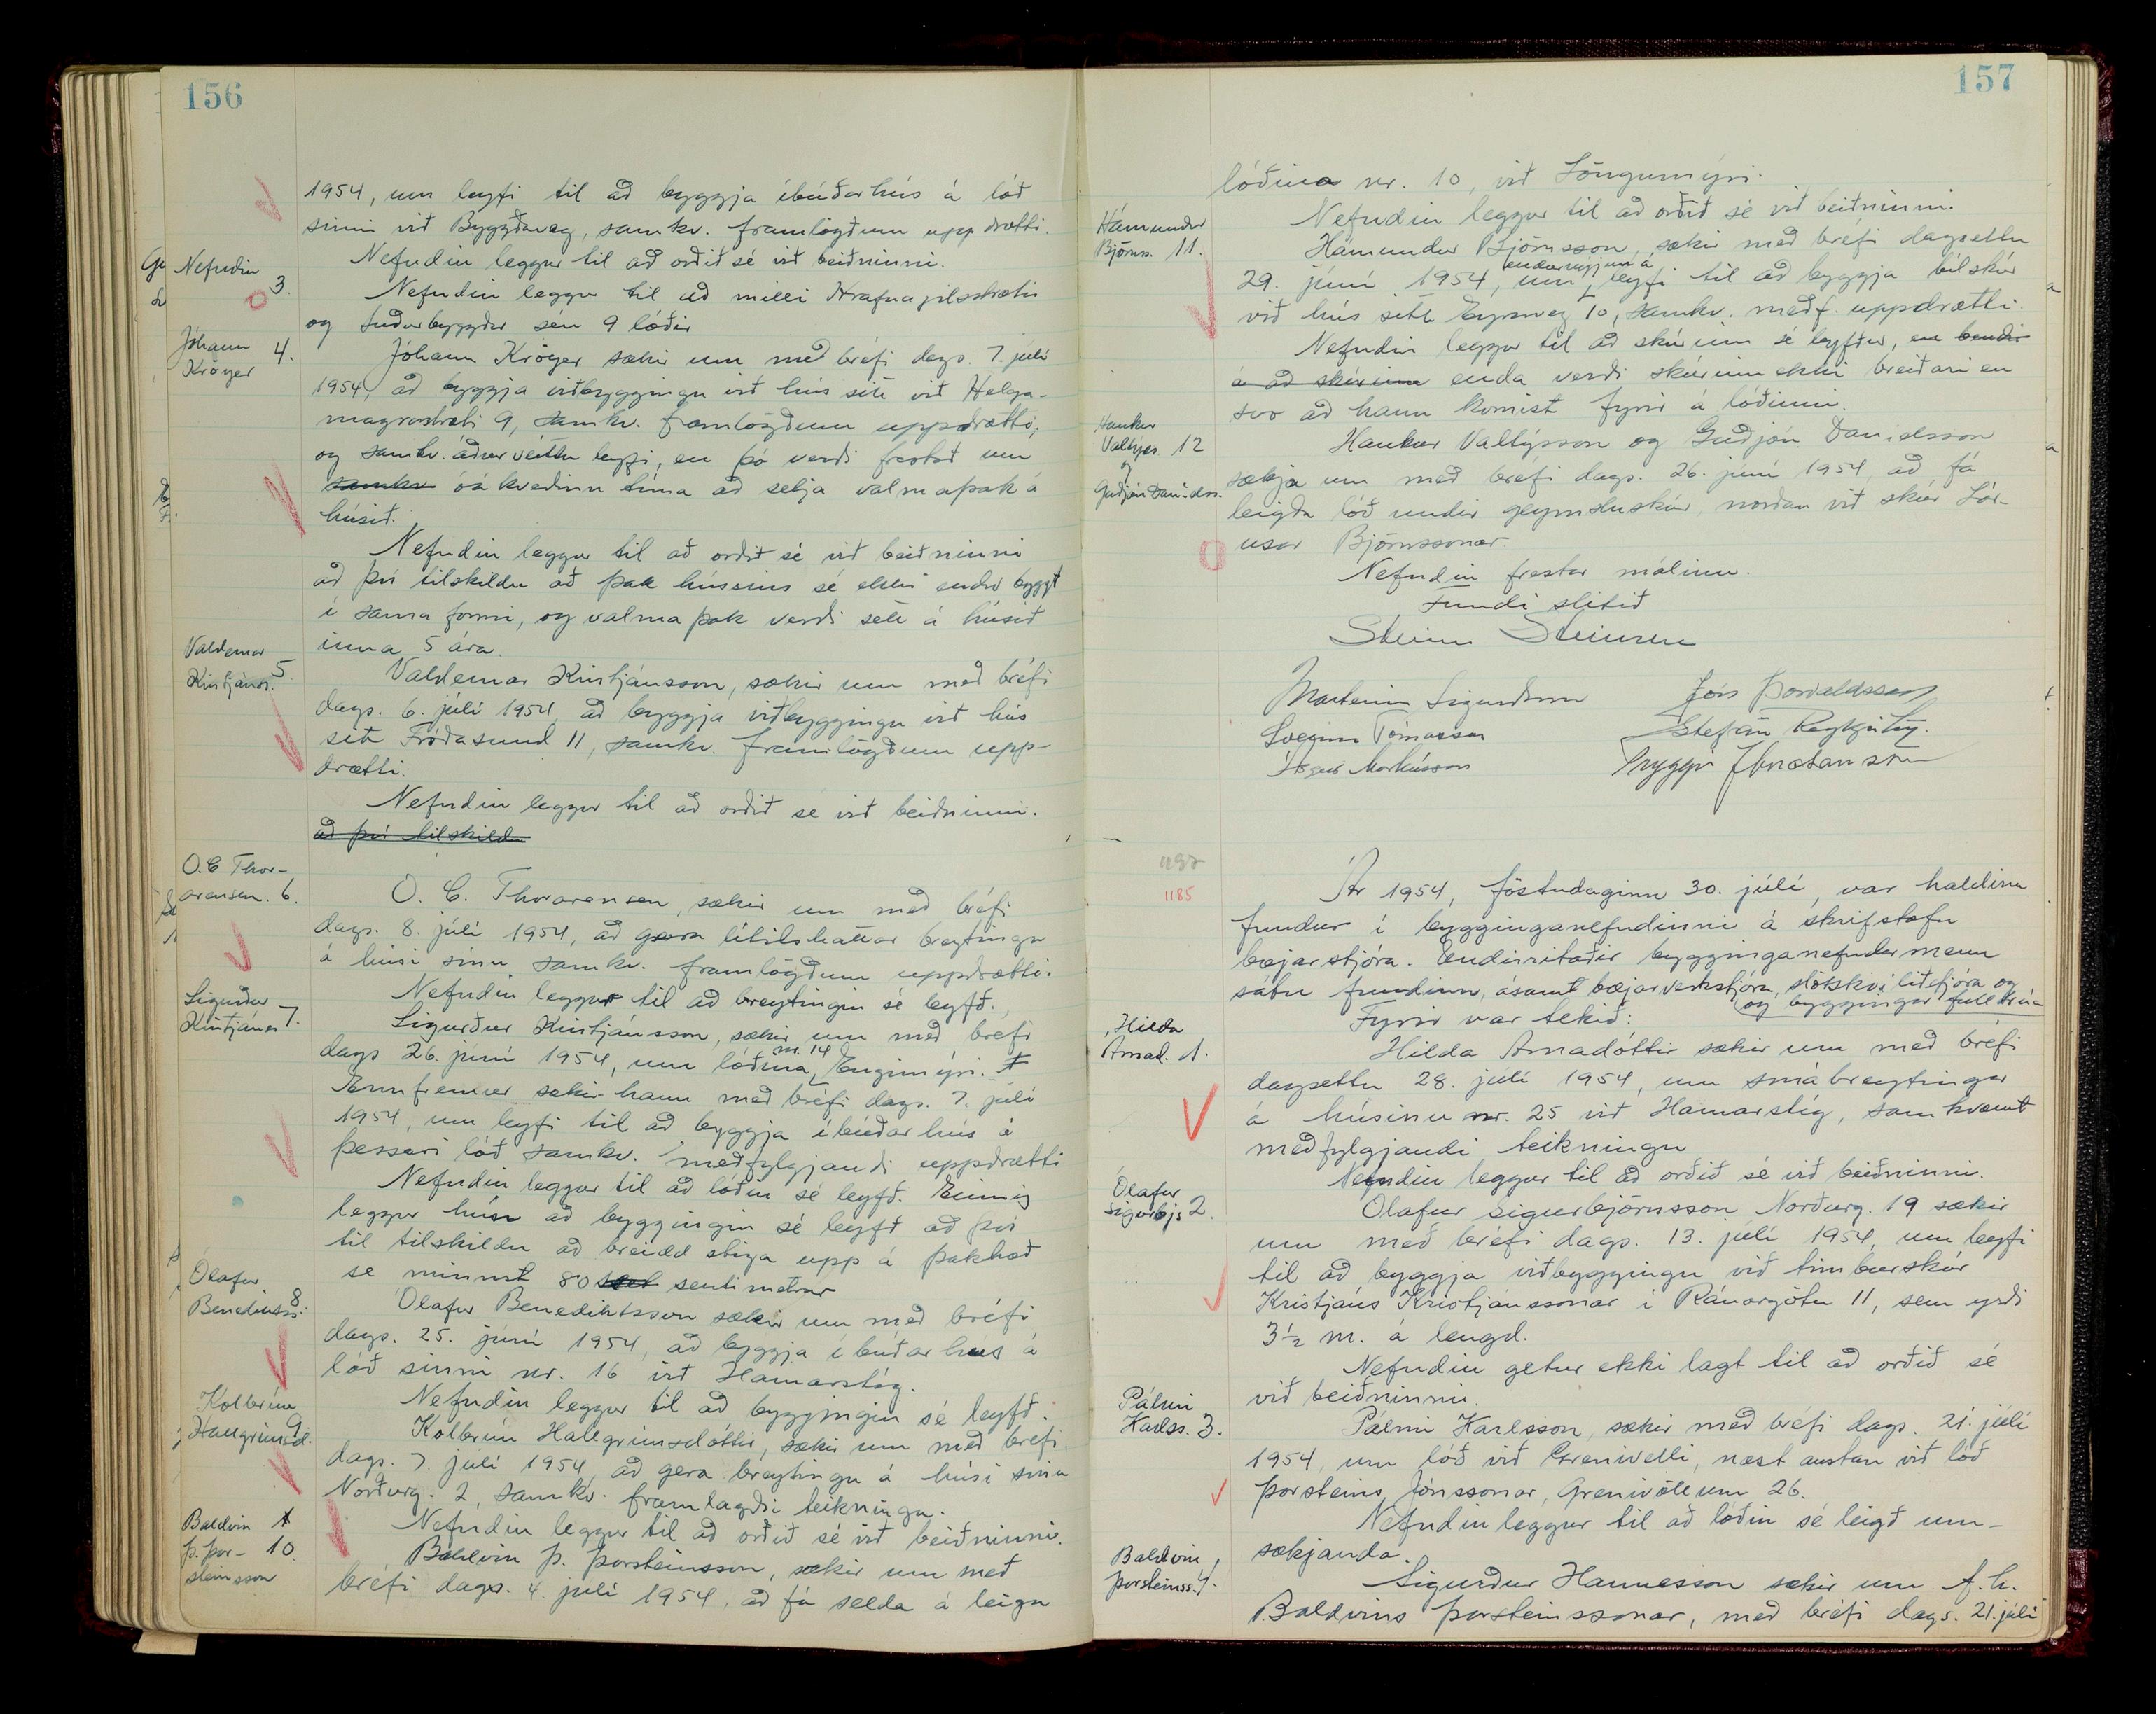 156
1954, um leyfi til að byggja íbúðarhús á lóð
sinni við Byggðaveg, samkv. framlögðum uppdrætti.
Nefndin leggur til að orðið sé við beiðninni.
Nefndin
3.
Nefndin leggur til að milli Hrafnagilsstrætis
og Suðurbyggðar séu 9 lóðir
Jóhann 4.
Kröyer
Jóhann Kröyer sækir um með bréfi dags. 7. júlí
1954, að byggja viðbyggingu við hús sitt við Helga-
magrastræti 9, samkv. framlögðum uppdrætti,
og samkv. áður veittu leyfi, en þó verði frestað um
samkv óákveðinn tíma að setja valmaþak á
húsið.
Nefndin leggur til að orðið sé við beiðninni
að því tilskildu að þak hússins sé ekki endurbyggt
í sama formi, og valmaþak verði sett á húsið
inna 5 ára.
Valdemar
Kristjánss. 5
Valdemar Kristjánsson, sækir um með bréfi
dags. 6. júlí 1954, að byggja viðbyggingu við hús
sitt Fróðasund 11, samkv. framlögðum upp-
drætti.
Nefndin leggur til að orðið sé við beiðninni.
að því tilskildu
O.C Thor-
arensen. 6.
O. C. Thorarensen, sækir um með bréfi
dags. 8. júlí 1954, að gera lítilsháttar breytingu
á húsi sínu samkv. framlögðum uppdrætti.
Nefndin leggur til að breytingin sé leyfð.
Sigurður
Kristjánss 7.
Sigurður Kristjánsson, sækir um með bréfi
dags 26. júní 1954, um lóðina nr. 14 Engimýri.
Ennfremur sækir hann með bréfi dags. 7. júlí
1954, um leyfi til að byggja íbúðarhús á
þessari lóð samkv. meðfylgjandi uppdrætti
Nefndin leggur til að lóðin sé leyfð. Einnig
leggur hún að byggingin sé leyfð að því
til tilskildu að breidd stiga upp á þakhæð
sé minnst 80 sentimetrar
Ólafur
Benediktss. 8.
Ólafur Benediktsson sækir um með bréfi
dags. 25. júní 1954, að byggja íbúðarhús á
lóð sinni nr. 16 við Hamarstíg.
Nefndin leggur til að byggingin sé leyfð.
Kolbrún
Hallgrímsd. 9.
Kolbrún Hallgrímsdóttir, sækir um með bréfi
dags. 7. júlí 1954, að gera breytingu á húsi sínu
Norðurg. 2, samkv. framlagðri teikningu.
Nefndin leggur til að orðið sé við beiðninni.
Baldvin
Þ. Þor- 10.
steinsson
Baldvin Þ. Þorsteinsson, sækir um með
bréfi dags. 4. júlí 1954, að fá selda á leigu
157
lóðina nr. 10, við Löngumýri.
Nefndin leggur til að orðið sé við beiðninni.
Hámundur
Björnss. 11.
Hámundur Björnsson, sækir með bréfi dagsettu
29. júní 1954, um endurnýjun á leyfi til að byggja bílskúr
við hús sitt Eyrarveg 10, samkv. meðf. uppdrætti.
Nefndin leggur til að skúrinn sé leyfður, en bendir
á að skúrinn enda verði skúrinn ekki breiðari en
svo að hann komist fyrir á lóðinni.
Haukur
Valtýss. 12
og
Guðjón Daníelss.
Haukur Valtýsson og Guðjón Daníelsson
sækja um með bréfi dags. 26. júní 1954, að fá
leigða lóð undir geymsluskúr, norðan við skúr Lár-
usar Björnssonar
Nefndin frestar málinu.
Fundi slitið
Steinn Steinsen
Marteinn Sigurðsson
Jón Þorvaldsson
Sveinn Tómasson
Stefán Reykjalín.
Ásgeir Markússon
Tryggvi Jónatansson
1187
1185
Ár 1954, föstudaginn 30. júlí, var haldinn
fundur í bygginganefndinni á skrifstofu
bæjarstjóra. Undirritaðir bygginganefndarmenn
sátu fundinn, ásamt bæjarverkstjóra, slökkviliðstjóra og
og byggingarfulltrúa
Fyrir var tekið:
Hilda
Árnad. 1.
Hilda Árnadóttir sækir um með bréfi
dagsettu 28. júlí 1954, um smábreytingar
á húsinu nr. 25 við Hamarstíg, samkvæmt
meðfylgjandi teikningu
Nefndin leggur til að orðið sé við beiðninni.
Ólafur
Sigurbjs 2.
Ólafur Sigurbjörnsson Norðurg. 19 sækir
um með bréfi dags. 13. júlí 1954, um leyfi
til að byggja viðbyggingu við timburskúr
Kristjáns Kristjánssonar í Ránargötu 11, sem yrði
3½ m. á lengd.
Nefndin getur ekki lagt til að orðið sé
við beiðninni.
Pálmi
Karlss. 3.
Pálmi Karlsson, sækir með bréfi dags. 21. júlí
1954, um lóð við Grenivelli, næst austan við lóð
Þorsteins Jónssonar, Grenivöllum 26.
Nefndin leggur til að lóðin sé leigð um-
sækjanda.
Baldvin
Þorsteinss. 4.
Sigurður Hannesson sækir um f.h.
Baldvins Þorsteinssonar, með bréfi dags. 21. júlí